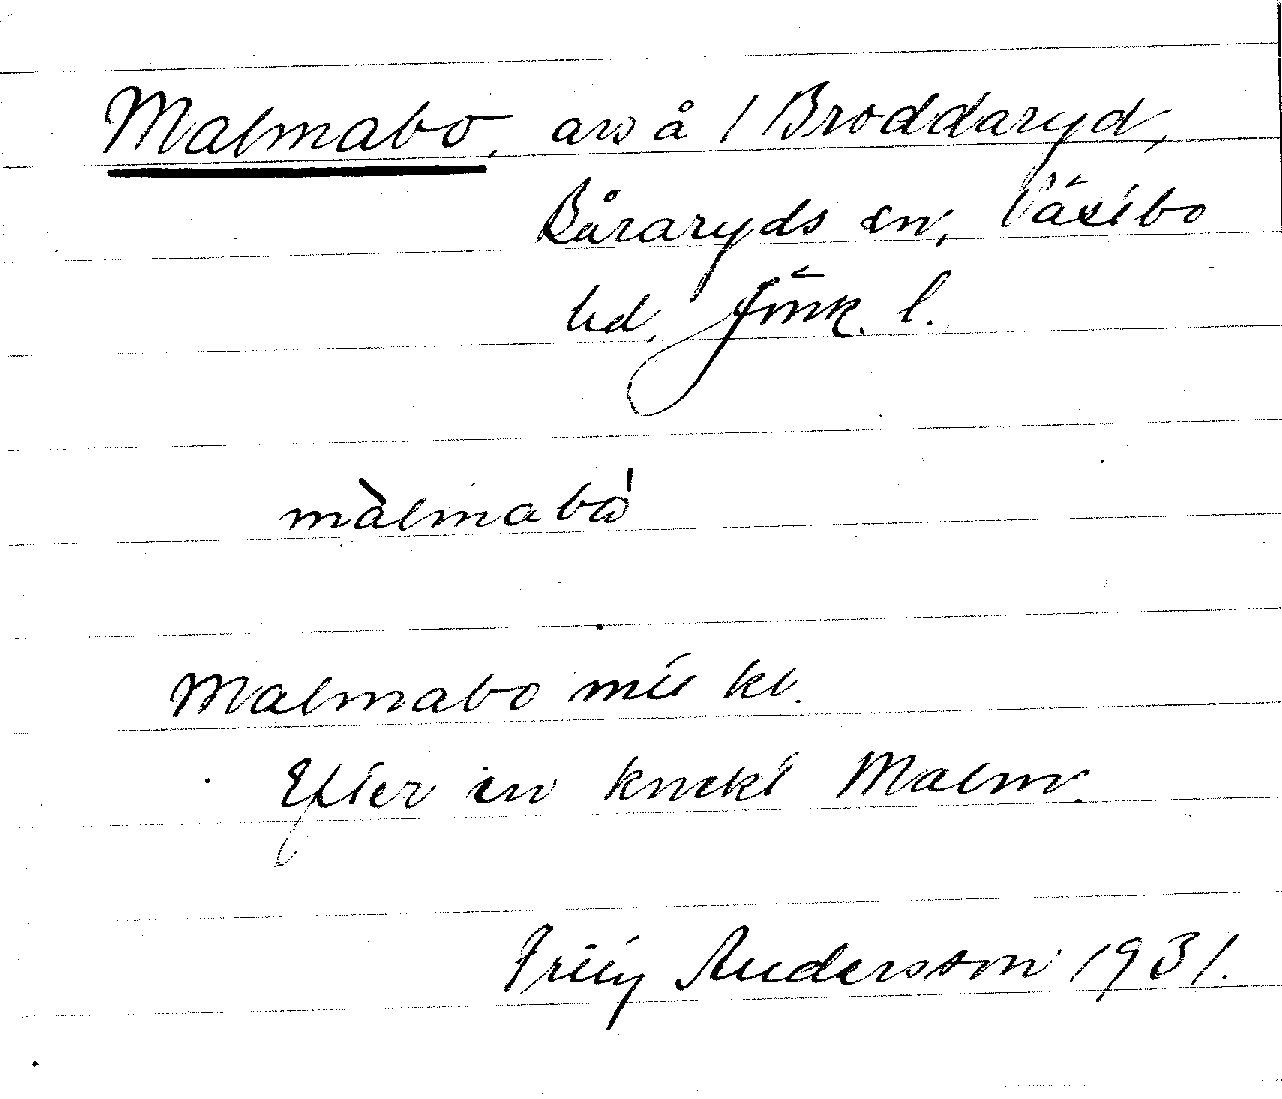 Malmabo, avs å 1 Broddaryd,
Båraryds sn, Västbo
hd, Jönk. l.
màlmabó
Malmabo
Efter en knekt Malm.
Andersson 1931.